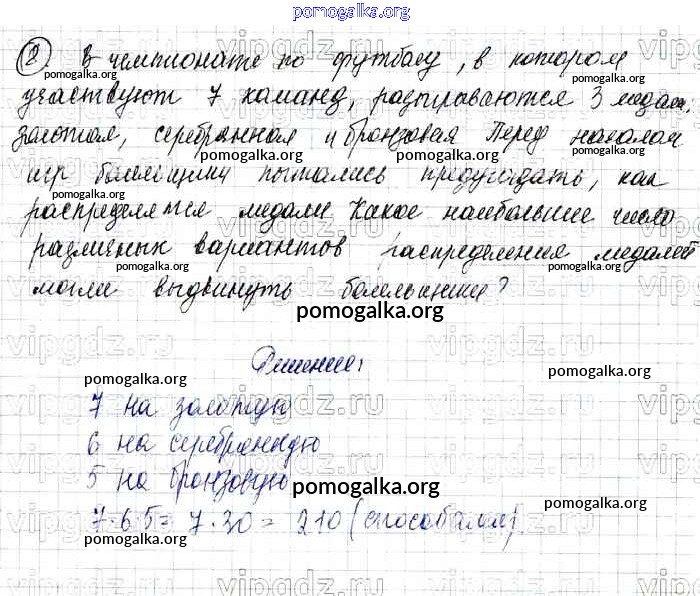 pomogalka.org
② В чемпионате по футболу, в котором
участвуют 7 команд, разыгрываются 3 медали,
золотая, серебрянная и бронзовая Перед началом
игр болельщики пытались предугадать, как
распределятся медали. Какое наибольшее число
различных вариантов распределения медалей
могли выдвинуть болельщики?
Решение:
7 на золотую
6 на серебрянную
5 на бронзовую
7·6·5= 7·30 = 210 (способами)